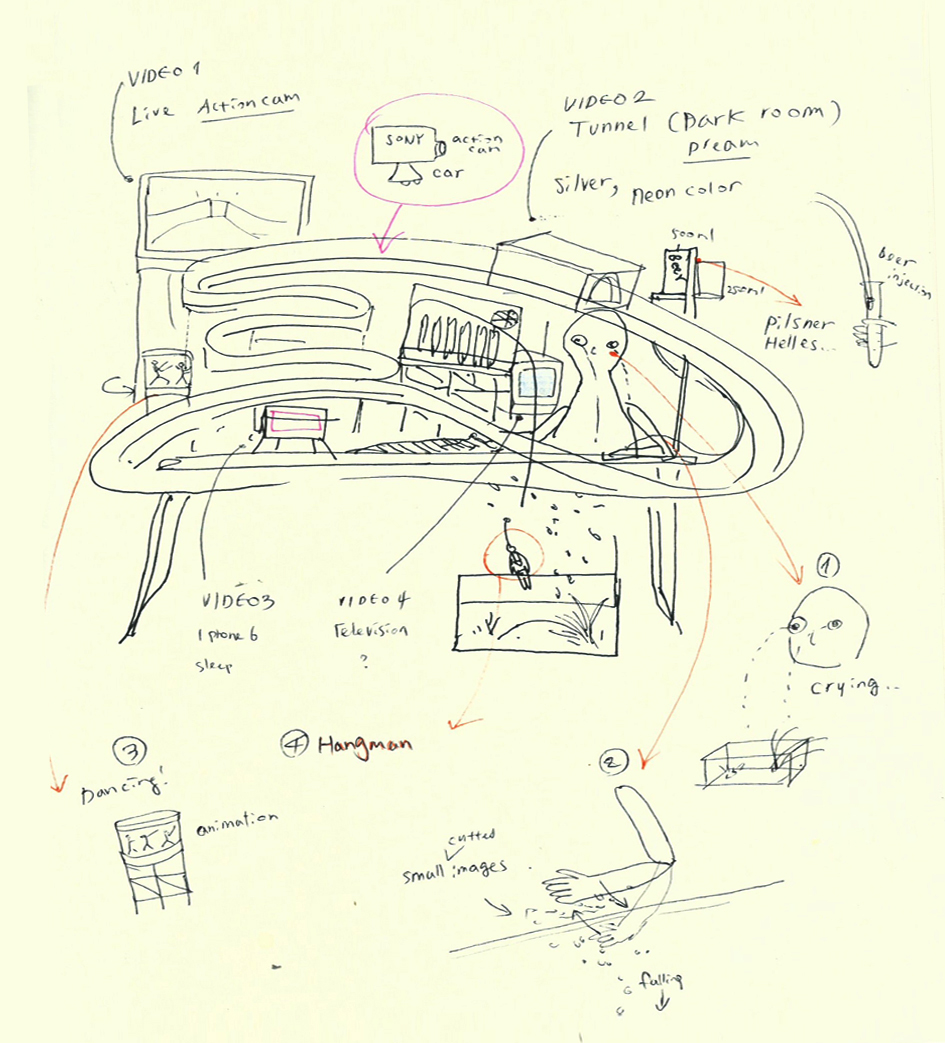 VIDEO 1
Live Action cam
SONY
action
cam
car
VIDEO 2
Tunnel (Dark room)
Dream
silver, neon color
500ml
BEER
250ml
beer
injection
Pilsner
Helles...
VIDEO3
iphone 6
sleep
VIDEO 4
Television
?
1
crying...
4 Hangman
3
Dancing!
animation
2
cutted
small images
falling